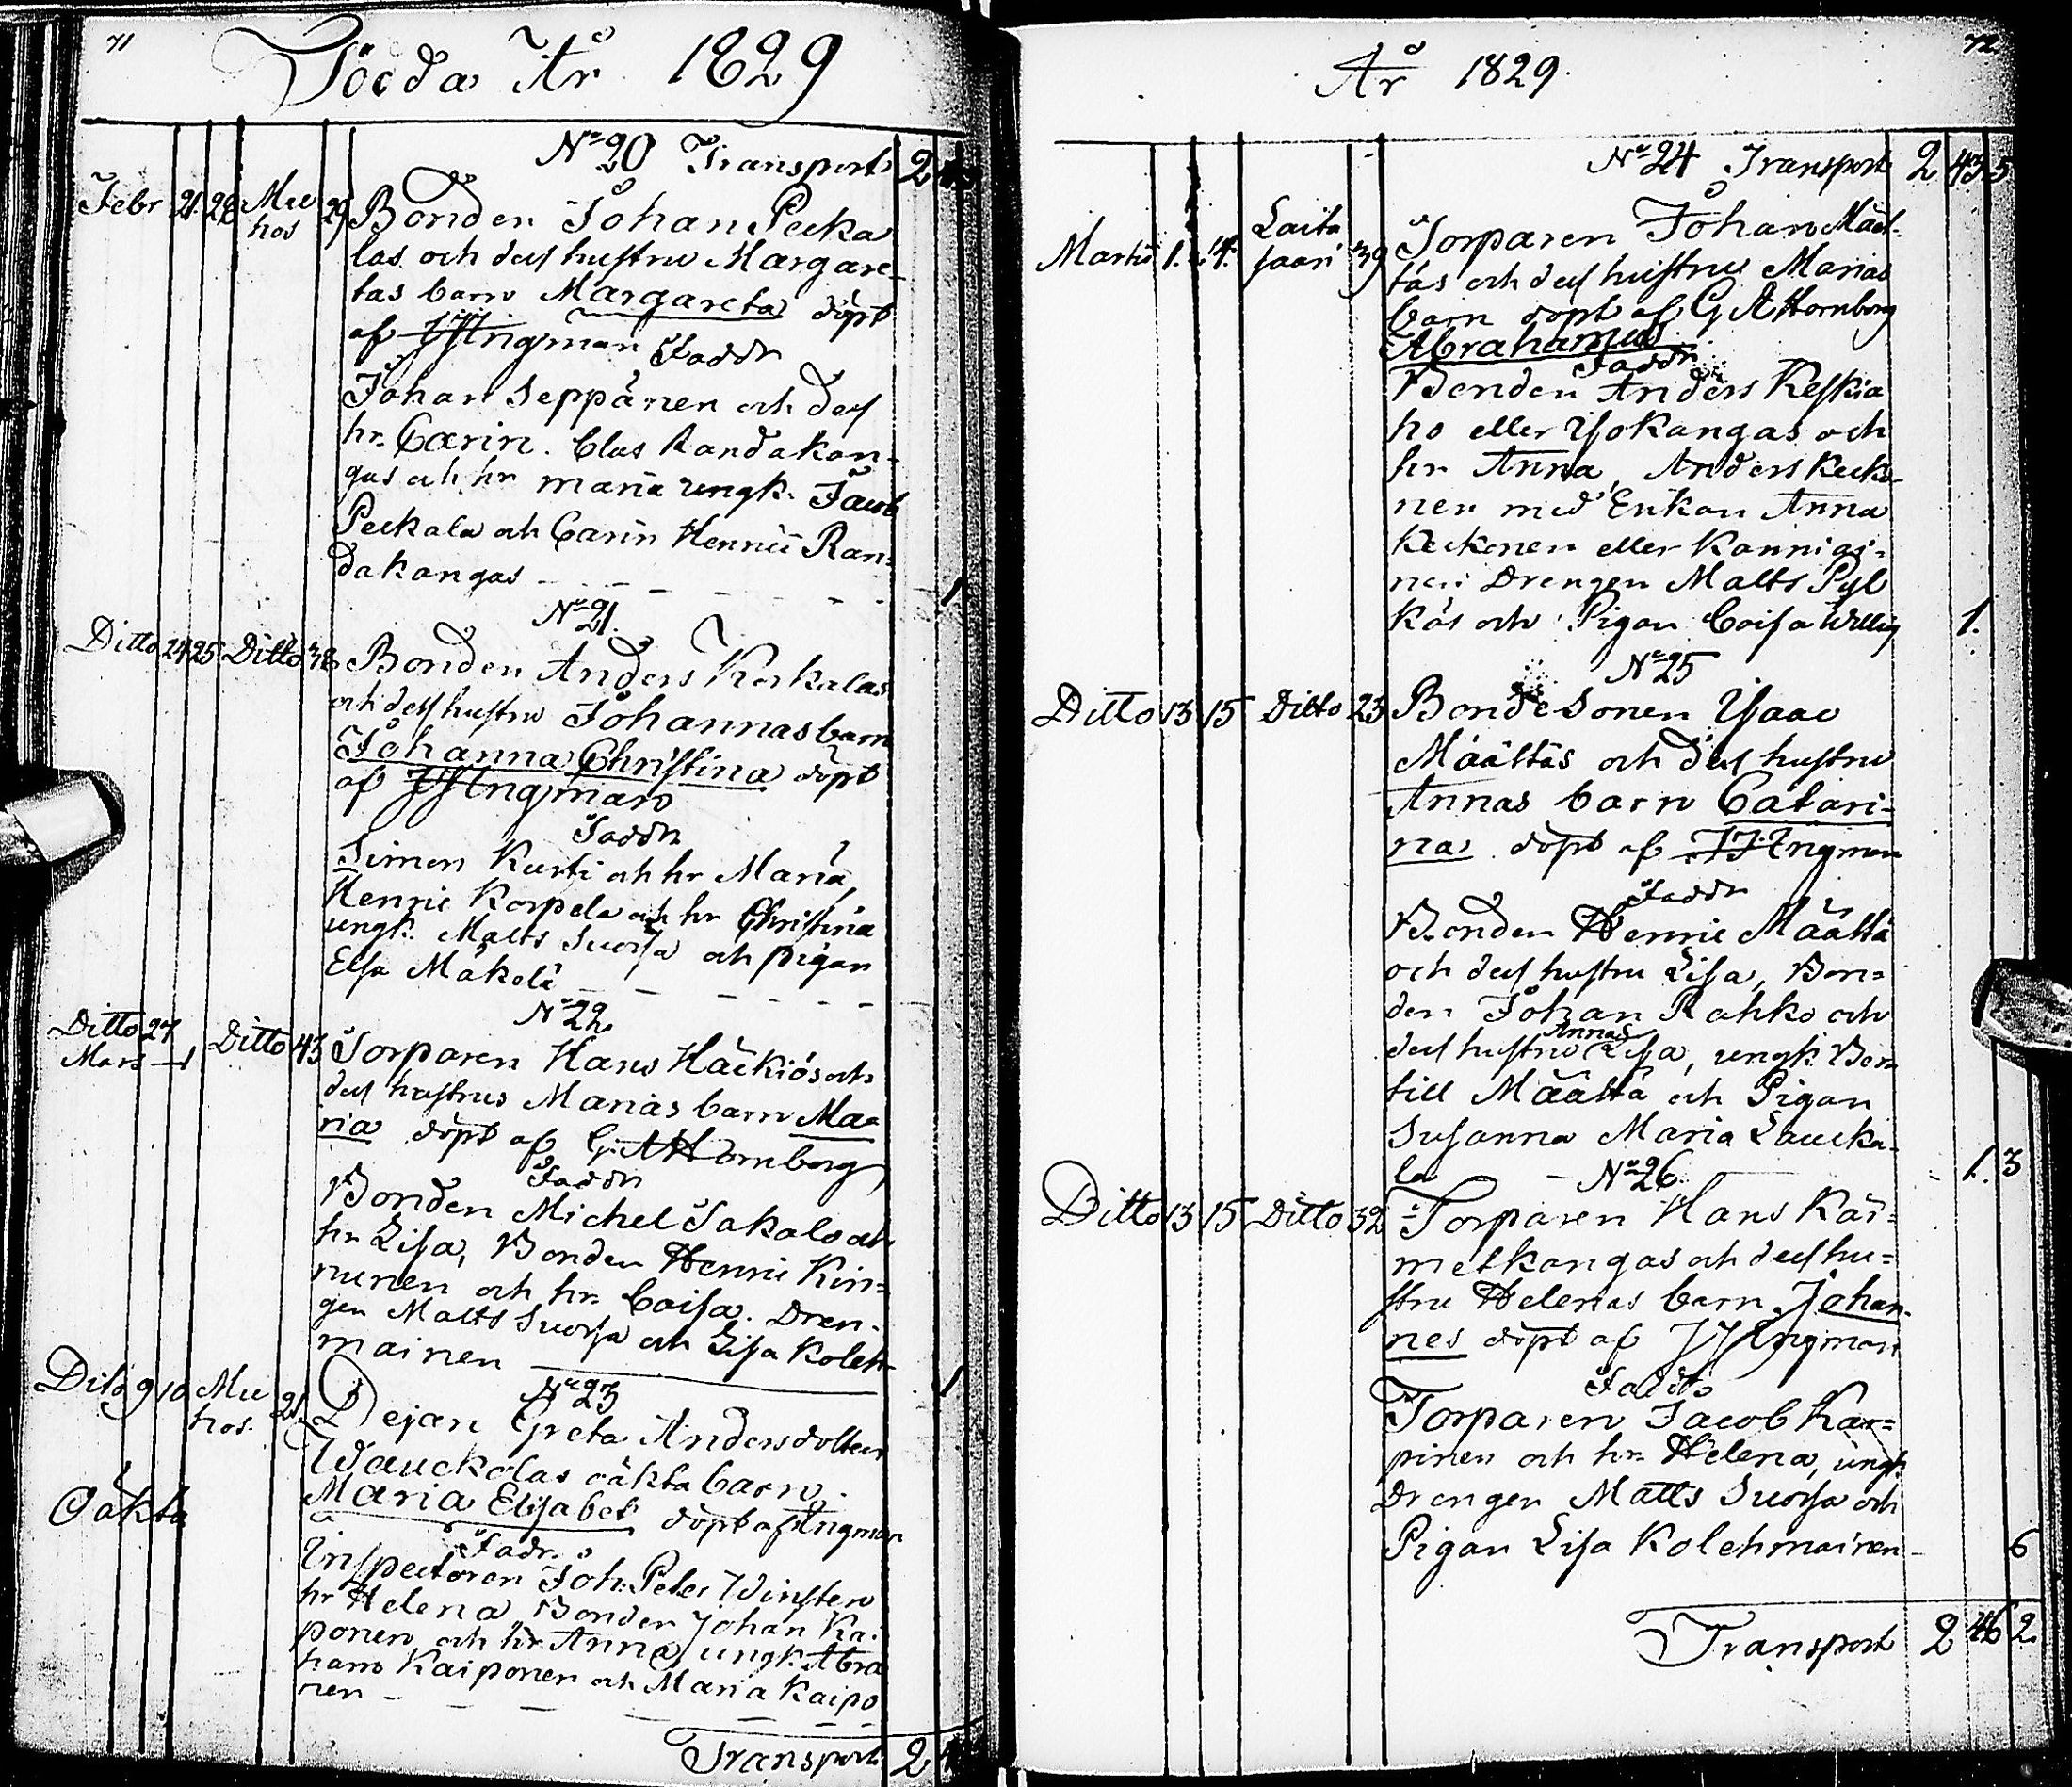 71
Födda År 1829
No 20 Transport 2
Febr 21 22 Mu 29 Bonden Johan Pecka
hos
las och dess hustru Margare-
tas barn Margareta döpt
af JJIngman
Faddr
Johan Seppänen och dess
hr. Carin. Clas Randakan-
gas och hr Maria ungk. Jacob
Peckala och Carin Henric Ran-
dakangas - - - - 1
No 21.
Ditto 24 25 Ditto 38 Bonden Anders Korkalas
och dess hustru Johannas barn
Johanna Christina döpt
af JJIngman
Faddr
Simon Kurti och hr Maria,
Henric Korpela och hr Christina
ungk. Matts Suorsa och pigan
Elsa Mäkelä - - - -
No 22.
Ditto 27 Ditto 43 Torparen Hans Häckiös och
Mars 1
dess hustrus Marias barn Ma-
ria döpt af G. A Hornborg
Faddr
Bonden Michel Jakalo och
hr Lisa, Bonden Henric Kin-
nunen och hr. Caisa. Dren-
gen Matts Suorsa och Lisa Koleh-
mainen 1
No 23
Ditto 9 10 Mu 21 Pejan Greta Andersdotter
hos.
Wauckolas oäkta barn
Oäkta
Maria Elisabet döpt af Ingman
Fadr.
Inspectoren Joh. Peter Winsten
hr Helena Bonden Johan Kai-
ponen och hr Anna, ungk. Abra
ham Kaiponen och Maria Kaipo
nen - - - -
Transport 2
72
År 1829.
No 24 Transport 2 43 5
Martii 1. 4. Laita 39 Torparen Johan Määt-
saari
täs och dess hustru Marias
barn döpt af G A Hornborg
Abrahamus
Faddr
Bonden Anders Keskia
ho eller Isokangas och
hr Anna, Anders Kecko-
nen med Enkan Anna
Keckonen eller Kannigi-
nen Drengen Matts Pyl
käs och Pigan Caisa Willig 1.
No 25
Ditto 13 15 Ditto 23 Bondesonen Isaac
Määttäs och dess hustru
Annas barn Catari-
na döpt af JJIngman
Faddr
Bonden Henric Määttä
och dess hustru Lisa, Bon-
den Johan Rahko och
Annas
dess hustru Lisa, ungk. Ber-
till Määttä och Pigan
Susanna Maria Laucka-
la 1. 3
No 26.
Ditto 13 15 Ditto 32 Torparen Hans Kär-
metkangas och dess hu-
stru Helenas barn Johan-
nes döpt af JJIngman
Faddr
Torparen Jacob Kar-
pinen och hr. Helena, ungk
Drengen Matts Suorsa och
Pigan Lisa Kolehmainen 6
Transport 2 46 2